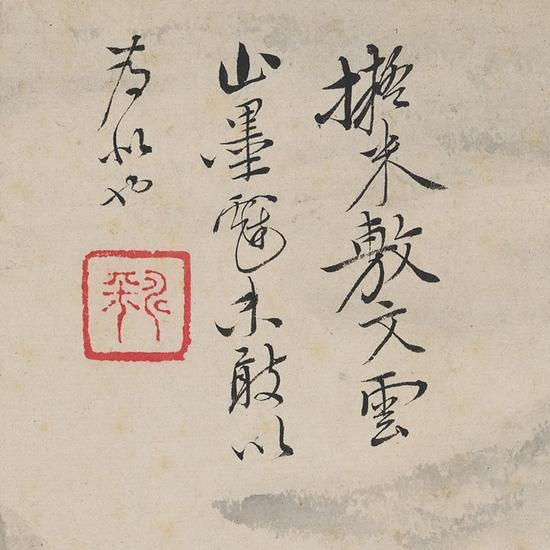 擬米敷文雲
山墨戲未敢以
為似也